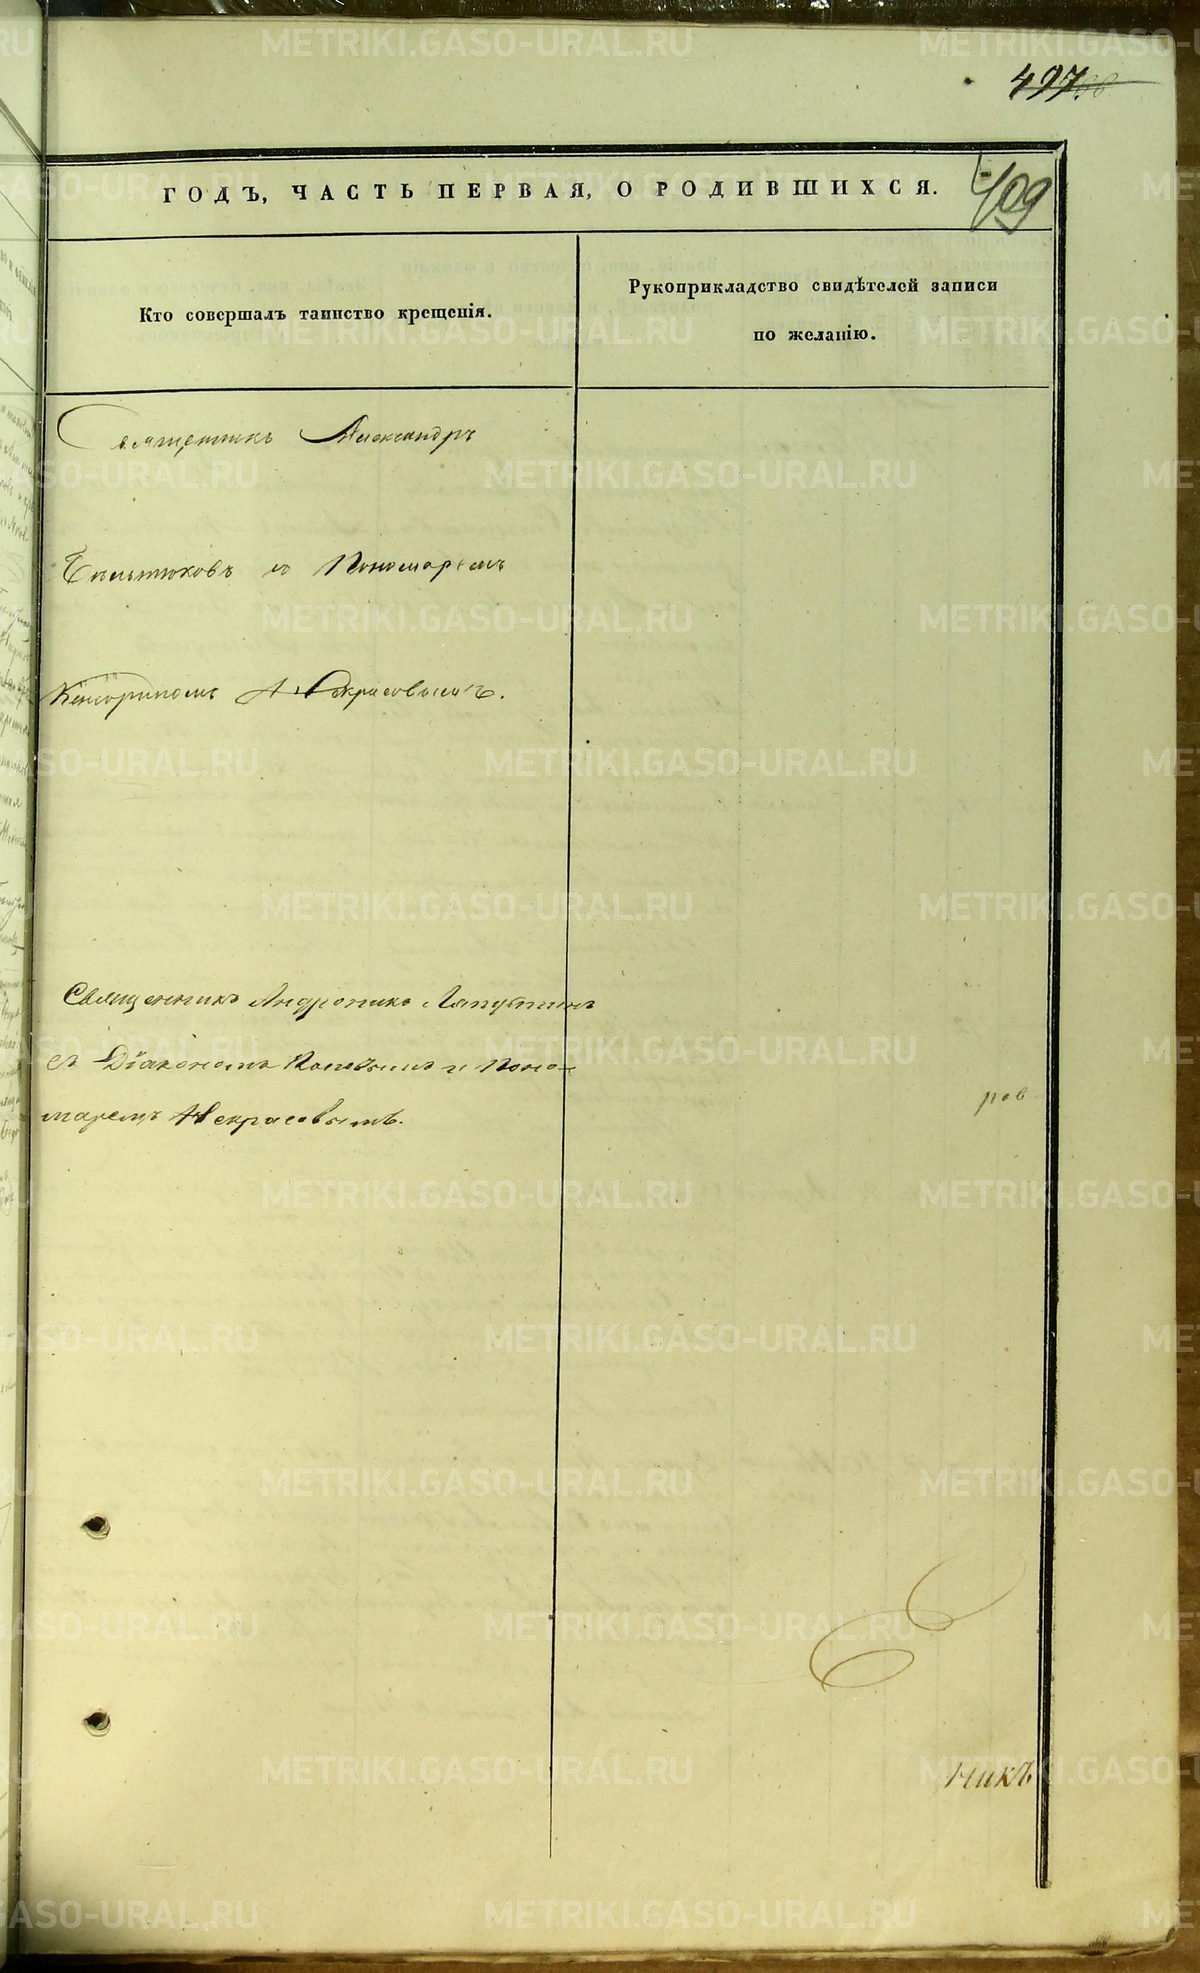 497.
409
ГОДЪ, ЧАСТЬ ПЕРВАЯ, О РОДИВШИХСЯ.
Кто совершалъ таинство крещенія.
Рукоприкладство свидѣтелей записи
по желанію.
Священникъ Александръ
Пономаремъ
Некрасовымъ.
Священникъ Андроникъ Лапутинъ
съ Діакономъ и Поно-
маремъ Некрасовымъ.
ров
никъ
METRIKI.GASO-URAL.RU